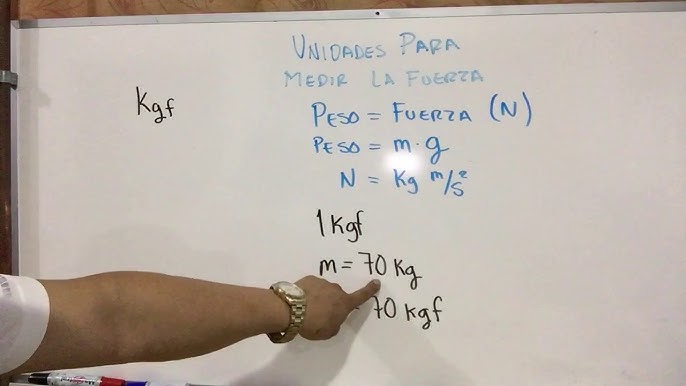 UNIDADES PARA
MEDIR LA FUERZA
Kgf
PESO = FUERZA (N)
PESO = m·g
N = Kg m/s²
1 Kgf
m = 70 Kg
70 kgf